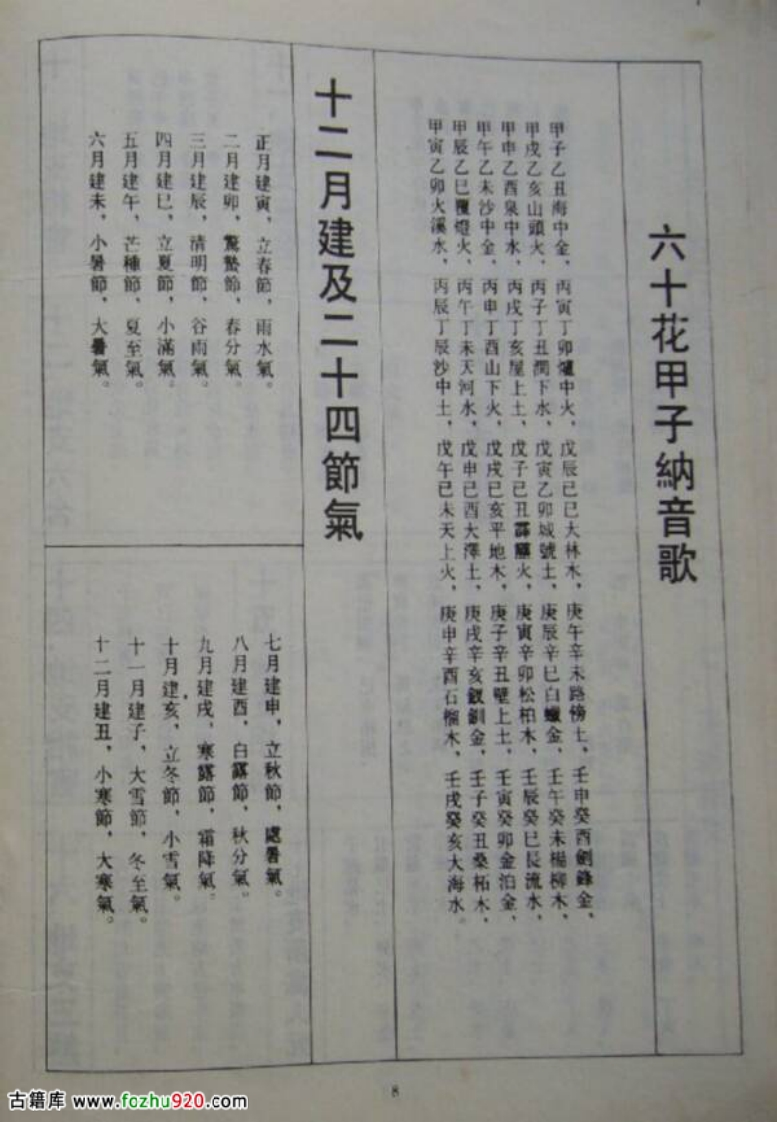 六十花甲子納音歌
甲子乙丑海中金、丙寅丁卯爐中火、戊辰己巳大林木、庚午辛未路傍土、壬申癸酉劍鋒金、
甲戌乙亥山頭火、丙子丁丑澗下水、戊寅乙卯城號土、庚辰辛巳白蠟金、壬午癸未楊柳木、
甲申乙酉泉中水、丙戌丁亥屋上土、戊子己丑霹靂火、庚寅辛卯松柏木、壬辰癸巳長流水、
甲午乙未沙中金、丙申丁酉山下火、戊戌己亥平地木、庚子辛丑壁上土、壬寅癸卯金泊金、
甲辰乙巳覆燈火、丙午丁未天河水、戊申己酉大澤土、庚戌辛亥釵釧金、壬子癸丑桑柘木、
甲寅乙卯火溪水、丙辰丁辰沙中土、戊午己未天上火、庚申辛酉石榴木、壬戌癸亥大海水。
十二月建及二十四節氣
正月建寅，立春節，雨水氣。
二月建卯，驚蟄節，春分氣。
三月建辰，清明節，谷雨氣。
四月建巳，立夏節，小滿氣。
五月建午，芒種節，夏至氣。
六月建未，小暑節，大暑氣。
七月建申，立秋節，處暑氣。
八月建酉，白露節，秋分氣。
九月建戌，寒露節，霜降氣。
十月建亥，立冬節，小雪氣。
十一月建子，大雪節，冬至氣。
十二月建丑，小寒節，大寒氣。
8
古籍库 www.fozhu920.com